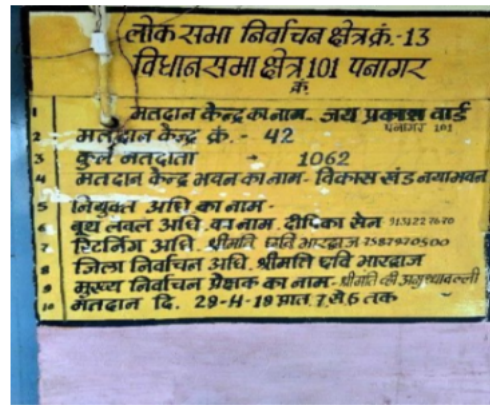 लोक सभा निर्वाचन क्षेत्र क्रं.-13
विधान सभा क्षेत्र 101 पनागर
क्रं.
1 मतदान केन्द्र का नाम- जय प्रकाश वार्ड
पनागर 101
2 मतदान केन्द्र क्रं.- 42
3 कुल मतदाता - 1062
4 मतदान केन्द्र भवन का नाम- विकास खंड नया भवन
5 नियुक्त अधि का नाम-
6 बूथ लेवल अधि. का नाम. दीपिका सेन
7 रिटर्निंग अधि. श्रीमति छवि भारद्वाज 7587970500
8 जिला निर्वाचन अधि. श्रीमति छवि भारद्वाज
9 मुख्य निर्वाचन प्रेक्षक का नाम- श्रीमति व्ही
10 मतदान दि. 29-4-19 प्रात. 7 से 6 तक